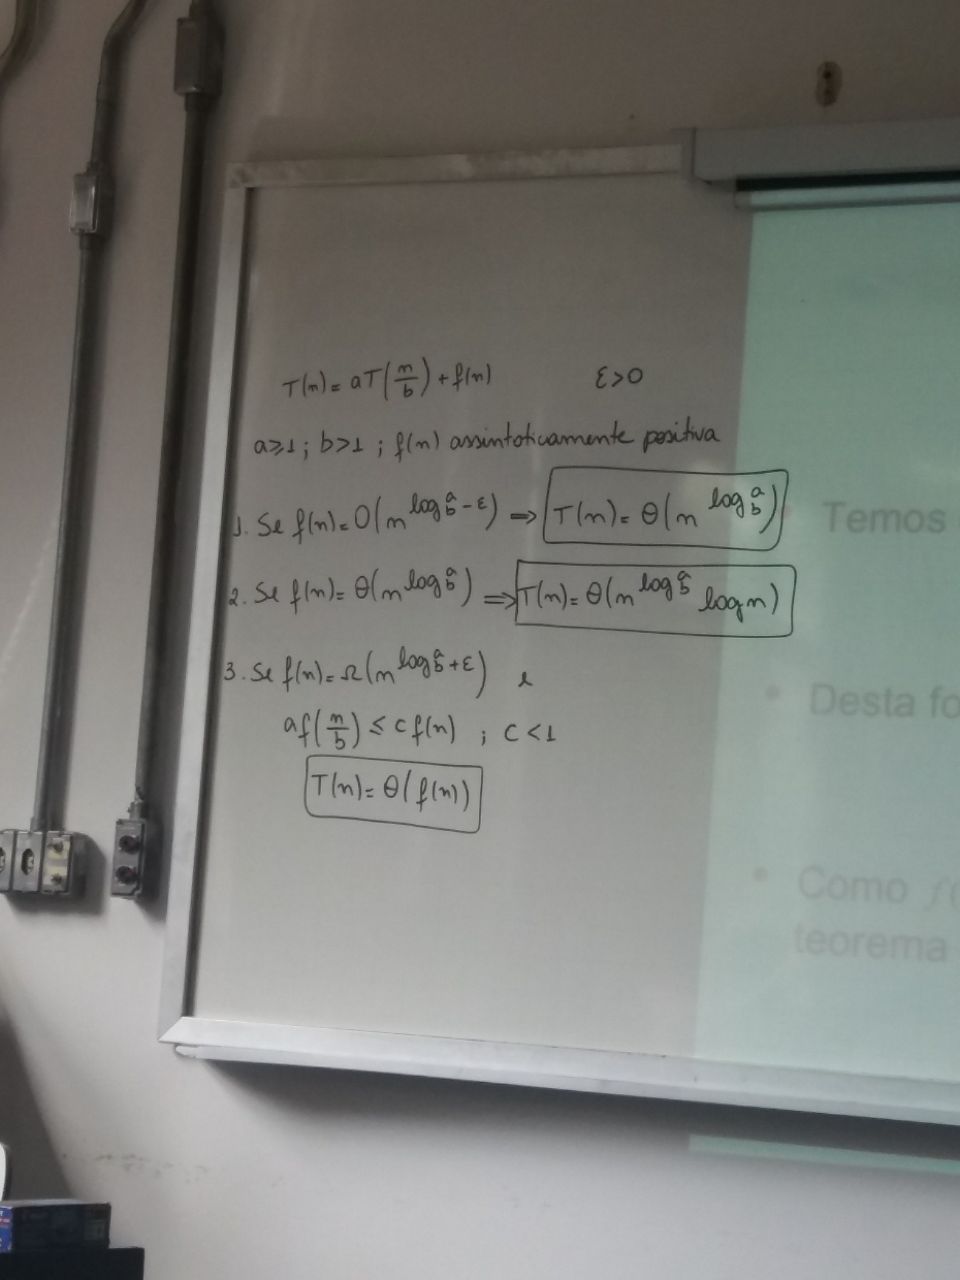 T(n) = aT(n/b) + f(n) ε>0
a≥1; b>1; f(n) assintoticamente positiva
1. Se f(n) = O(n^(log_b^a - ε)) ⇒ T(n) = θ(n^(log_b^a))
2. Se f(n) = θ(n^(log_b^a)) ⇒ T(n) = θ(n^(log_b^a) log n)
3. Se f(n) = Ω(n^(log_b^a + ε)) e
af(n/b) ≤ cf(n) ; c<1
T(n) = θ(f(n))
Temos
• Desta fo
• Como f(
teorema